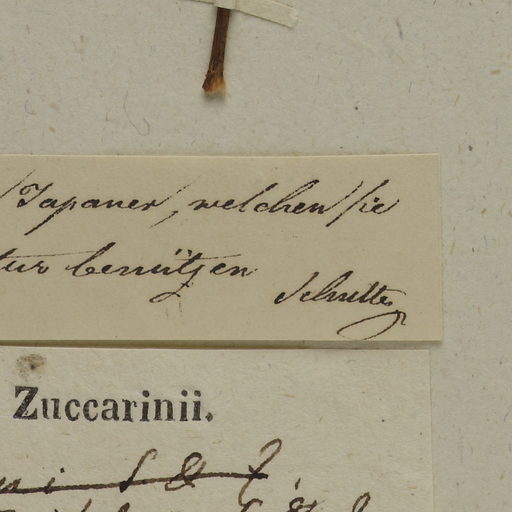 Japaner, welchen sie
tur benützen
Schultes
Zuccarinii.
S & Z.